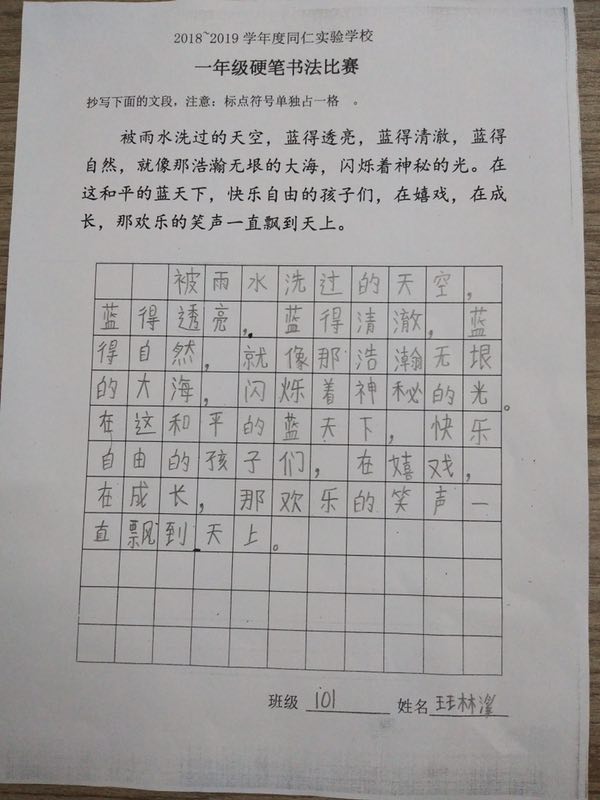 2018~2019 学年度同仁实验学校
一年级硬笔书法比赛
抄写下面的文段，注意：标点符号单独占一格 。
被雨水洗过的天空，蓝得透亮，蓝得清澈，蓝得
自然，就像那浩瀚无垠的大海，闪烁着神秘的光。在
这和平的蓝天下，快乐自由的孩子们，在嬉戏，在成
长，那欢乐的笑声一直飘到天上。
被雨水洗过的天空，
蓝得透亮，蓝得清澈，蓝
得自然，就像那浩瀚无垠
的大海，闪烁着神秘的光。
在这和平的蓝天下，快乐
自由的孩子们，在嬉戏，
在成长，那欢乐的笑声一
直飘到天上。
班级 101 姓名 王林